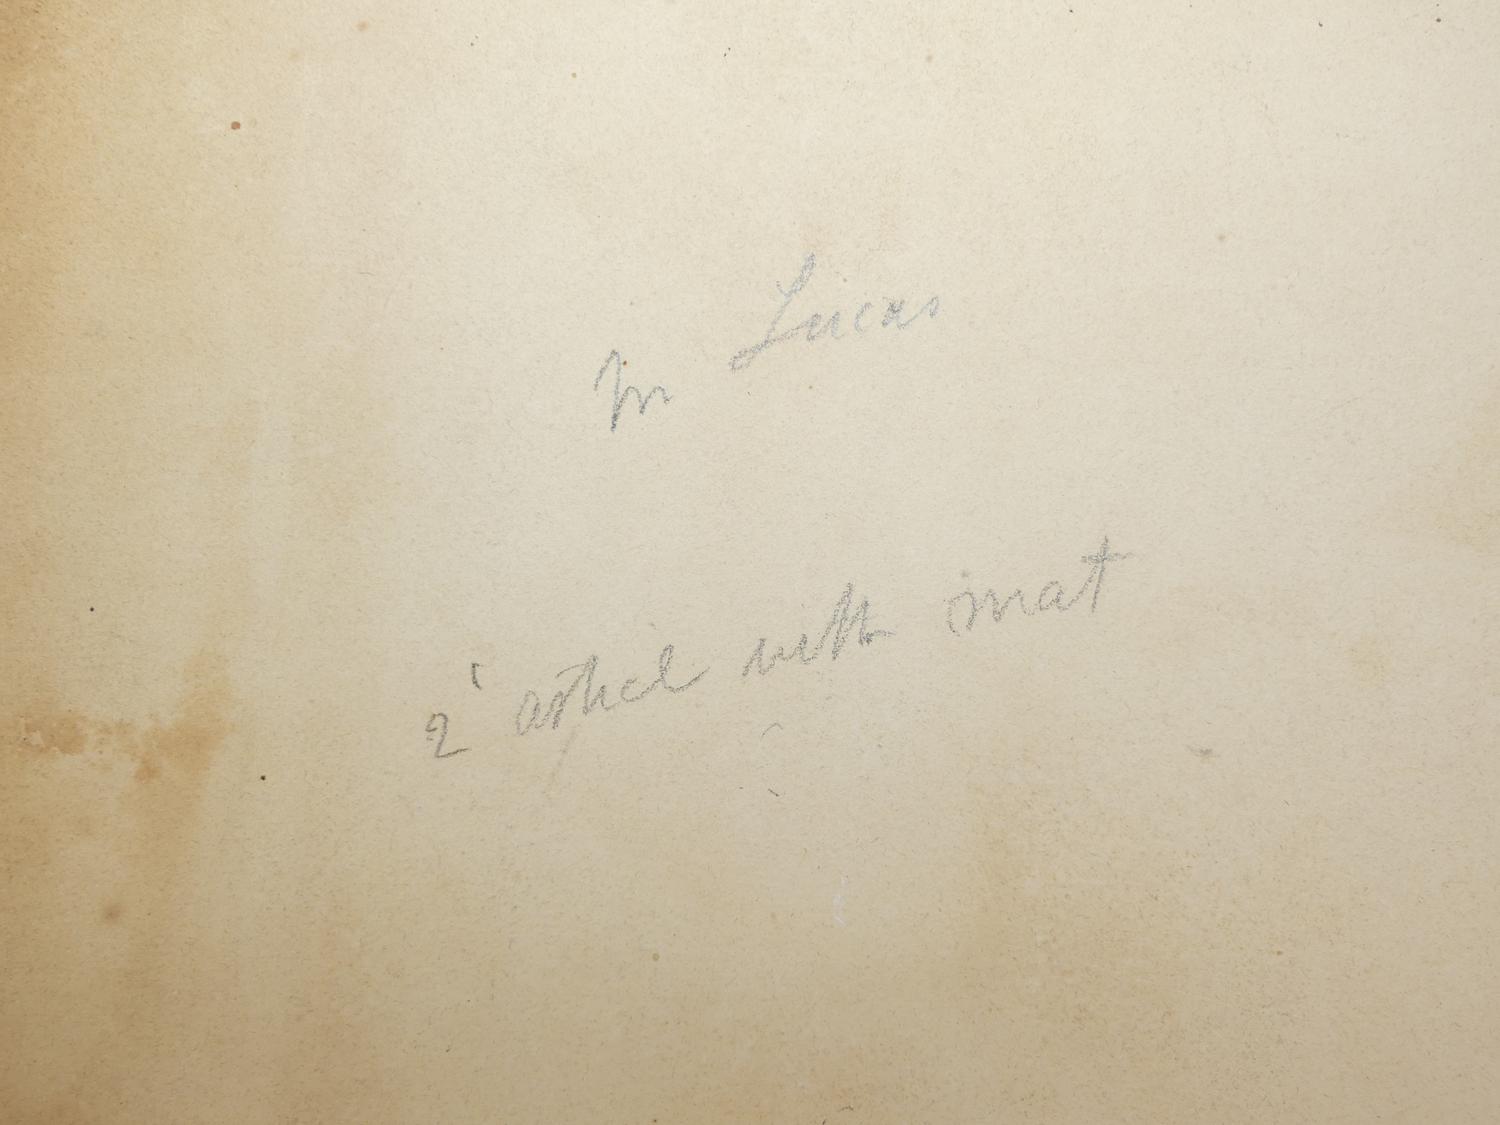 Mr Lucas
2' arched with mat